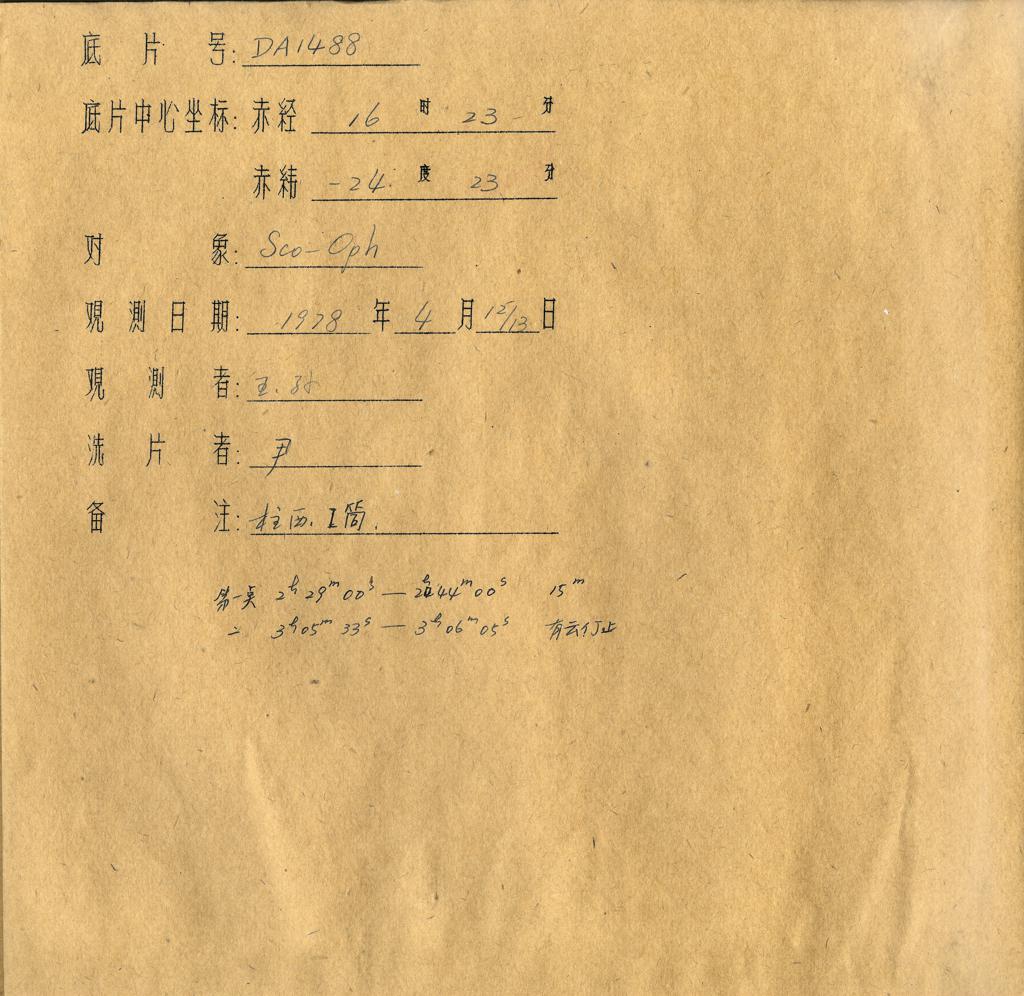 底片号: DA1488
底片中心坐标: 赤经 16 时 23 分
赤纬 -24 度 23 分
对象: Sco-Oph
观测日期: 1978 年 4 月 12/13 日
观测者: 王.孙
洗片者: 尹
备注: 柱西. I筒.
第一点 2h29m00s — 2h44m00s 15m
二 3h05m33s — 3h06m05s 有云停止